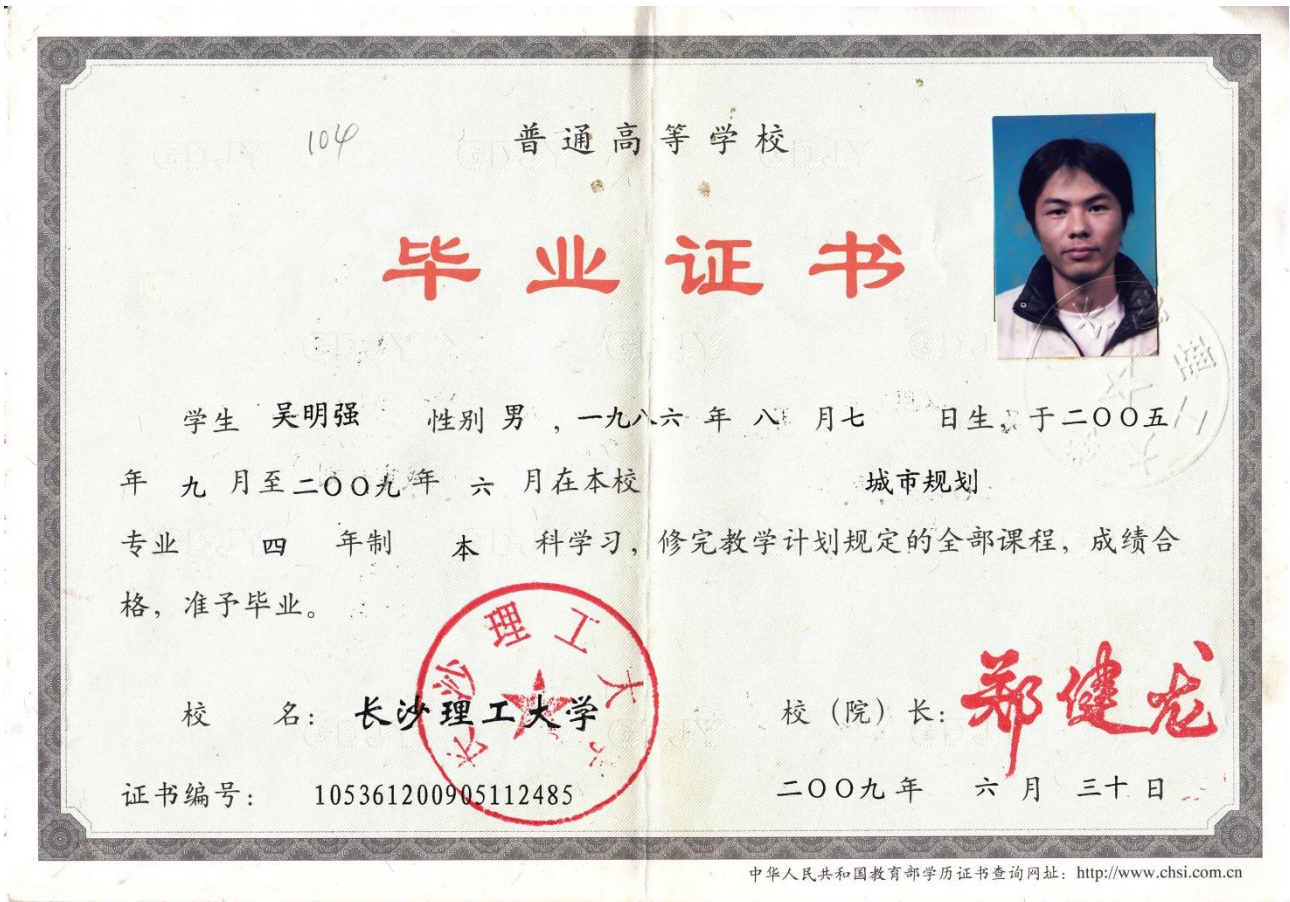 104
普通高等学校
毕业证书
学生 吴明强 性别 男 ，一九八六 年 八 月七 日生，于二〇〇五
年 九 月至二〇〇九年 六 月在本校 城市规划
专业 四 年制 本 科学习，修完教学计划规定的全部课程，成绩合
格，准予毕业。
校 名：长沙理工大学
长沙理工大学
校（院）长：郑健龙
证书编号： 105361200905112485
二〇〇九年 六 月 三十 日
中华人民共和国教育部学历证书查询网址：http://www.chsi.com.cn